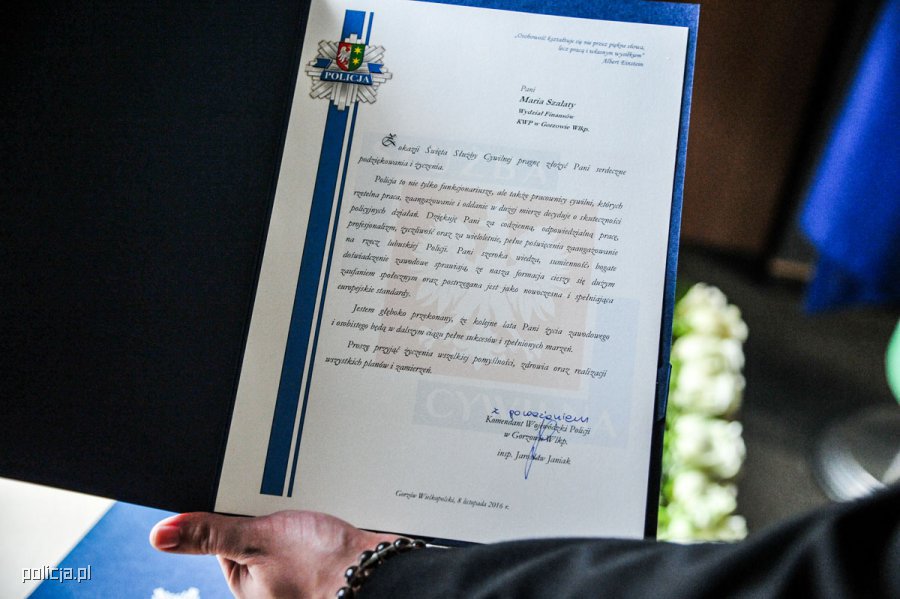 POLICJA
„Osobowość kształtuje się nie przez piękne słowa,
lecz pracą i własnym wysiłkiem"
Albert Einstein
Pani
Maria Szałaty
Wydział Finansów
KWP w Gorzowie Wlkp.
Z okazji Święta Służby Cywilnej pragnę złożyć Pani serdeczne
podziękowania i życzenia.
Policja to nie tylko funkcjonariusze, ale także pracownicy cywilni, których
rzetelna praca, zaangażowanie i oddanie w dużej mierze decyduje o skuteczności
policyjnych działań. Dziękuję Pani za codzienną, odpowiedzialną pracę,
profesjonalizm, życzliwość oraz za wieloletnie, pełne poświęcenia zaangażowanie
na rzecz lubuskiej Policji. Pani szeroka wiedza, sumienność i bogate
doświadczenie zawodowe sprawiają, że nasza formacja cieszy się dużym
zaufaniem społecznym oraz postrzegana jest jako nowoczesna i spełniająca
europejskie standardy.
Jestem głęboko przekonany, że kolejne lata Pani życia zawodowego
i osobistego będą w dalszym ciągu pełne sukcesów i spełnionych marzeń.
Proszę przyjąć życzenia wszelkiej pomyślności, zdrowia oraz realizacji
wszystkich planów i zamierzeń.
CYWILNA
z poważaniem
Komendant Wojewódzki Policji
w Gorzowie Wlkp.
insp. Jarosław Janiak
Gorzów Wielkopolski, 8 listopada 2016 r.
policja.pl